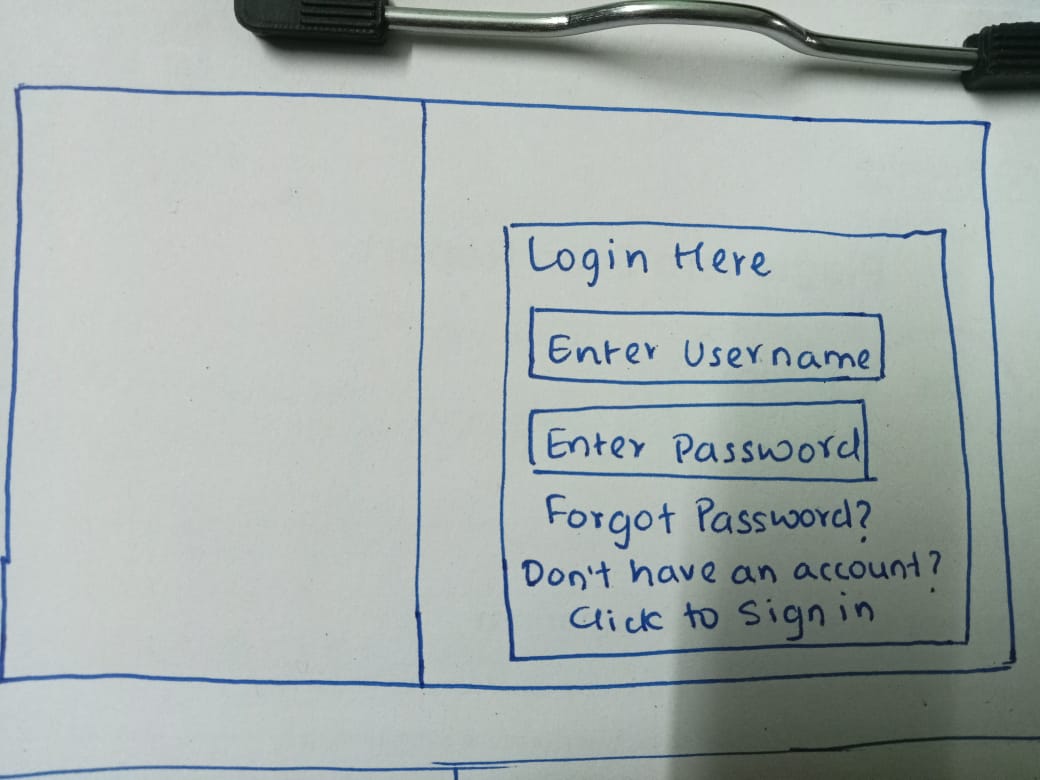 Login Here
Enter Username
Enter Password
Forgot Password?
Don't have an account?
Click to Sign in